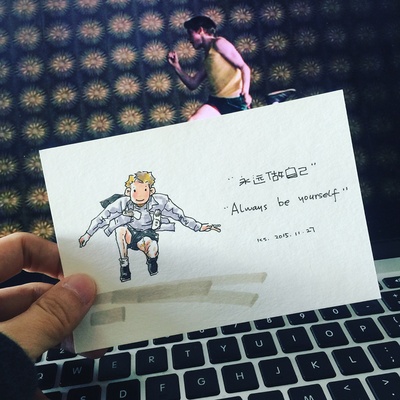 "永远做自己"
"Always be yourself"
2015.11.27
W E R T Y U I O P
D F G H J K L